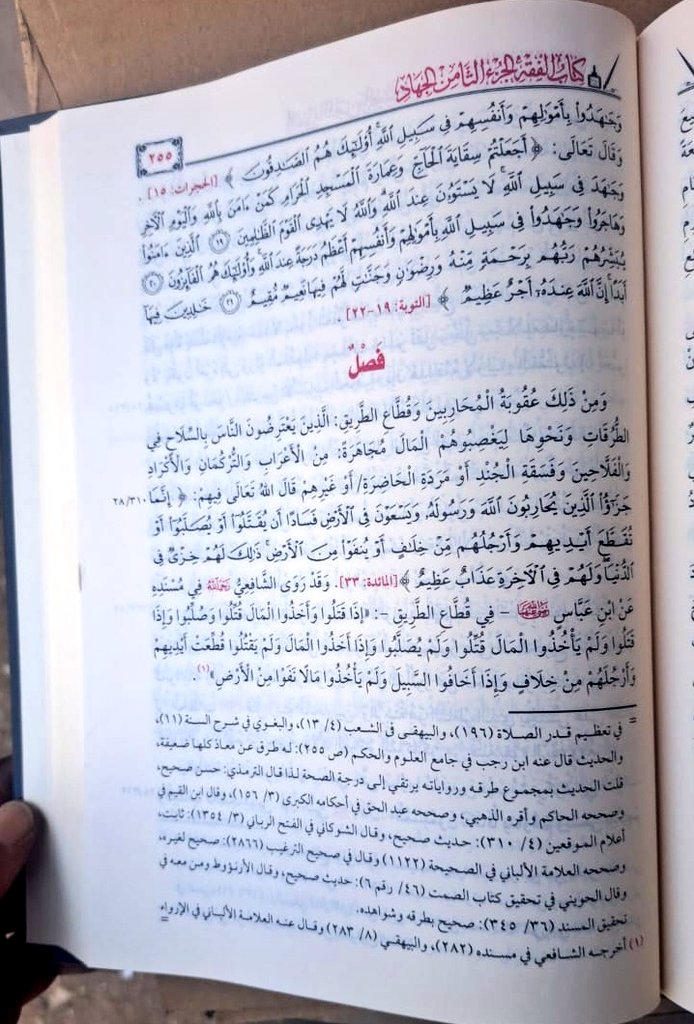 كتاب الفقه الجزء الثامن الجهاد
٢٥٥
وَجَٰهَدُواْ بِأَمْوَٰلِهِمْ وَأَنفُسِهِمْ فِي سَبِيلِ ٱللَّهِ أُوْلَٰٓئِكَ هُمُ ٱلصَّٰدِقُونَ ﴾ [الحجرات: ١٥] .
وَقَالَ تَعَالَى: ﴿ أَجَعَلْتُمْ سِقَايَةَ ٱلْحَآجِّ وَعِمَارَةَ ٱلْمَسْجِدِ ٱلْحَرَامِ كَمَنْ ءَامَنَ بِٱللَّهِ وَٱلْيَوْمِ ٱلْءَاخِرِ
وَجَٰهَدَ فِي سَبِيلِ ٱللَّهِ لَا يَسْتَوُۥنَ عِندَ ٱللَّهِ وَٱللَّهُ لَا يَهْدِى ٱلْقَوْمَ ٱلظَّٰلِمِينَ ١٩ ٱلَّذِينَ ءَامَنُواْ
وَهَاجَرُواْ وَجَٰهَدُواْ فِي سَبِيلِ ٱللَّهِ بِأَمْوَٰلِهِمْ وَأَنفُسِهِمْ أَعْظَمُ دَرَجَةً عِندَ ٱللَّهِ وَأُوْلَٰٓئِكَ هُمُ ٱلْفَآئِزُونَ ٢٠
يُبَشِّرُهُمْ رَبُّهُم بِرَحْمَةٍ مِّنْهُ وَرِضْوَٰنٍ وَجَنَّٰتٍ لَّهُمْ فِيهَا نَعِيمٌ مُّقِيمٌ ٢١ خَٰلِدِينَ فِيهَآ
أَبَدًا إِنَّ ٱللَّهَ عِندَهُۥٓ أَجْرٌ عَظِيمٌ ﴾ [التوبة: ١٩-٢٢] .
فَصْلٌ
وَمِنْ ذَلِكَ عُقُوبَةُ الْمُحَارِبِينَ وَقُطَّاعِ الطَّرِيقِ: الَّذِينَ يَعْتَرِضُونَ النَّاسَ بِالسِّلَاحِ فِي
الطُّرُقَاتِ وَنَحْوِهَا لِيَغْصِبُوهُمْ الْمَالَ مُجَاهَرَةً: مِنْ الْأَعْرَابِ وَالتُّرْكُمَانِ وَالْأَكْرَادِ
وَالْفَلَّاحِينَ وَفَسَقَةِ الْجُنْدِ أَوْ مَرَدَةِ الْحَاضِرَةِ/ أَوْ غَيْرِهِمْ قَالَ اللهُ تَعَالَى فِيهِمْ: ﴿ إِنَّمَا ٢٨/٣١٠
جَزَٰٓؤُاْ ٱلَّذِينَ يُحَارِبُونَ ٱللَّهَ وَرَسُولَهُۥ وَيَسْعَوْنَ فِي ٱلْأَرْضِ فَسَادًا أَن يُقَتَّلُوٓاْ أَوْ يُصَلَّبُوٓاْ أَوْ
تُقَطَّعَ أَيْدِيهِمْ وَأَرْجُلُهُم مِّنْ خِلَٰفٍ أَوْ يُنفَوْاْ مِنَ ٱلْأَرْضِ ذَٰلِكَ لَهُمْ خِزْىٌ فِي
ٱلدُّنْيَا وَلَهُمْ فِي ٱلْءَاخِرَةِ عَذَابٌ عَظِيمٌ ﴾ [المائدة: ٣٣]. وَقَدْ رَوَى الشَّافِعِيُّ رَحِمَهُ اللهُ فِي مُسْنَدِهِ
عَنْ ابْنِ عَبَّاسٍ رضي الله عنهما – فِي قُطَّاعِ الطَّرِيقِ –: «إذَا قَتَلُوا وَأَخَذُوا الْمَالَ قُتِّلُوا وَصُلِّبُوا وَإِذَا
قَتَلُوا وَلَمْ يَأْخُذُوا الْمَالَ قُتِّلُوا وَلَمْ يُصَلَّبُوا وَإِذَا أَخَذُوا الْمَالَ وَلَمْ يَقْتُلُوا قُطِّعَتْ أَيْدِيهِمْ
وَأَرْجُلُهُمْ مِنْ خِلَافٍ وَإِذَا أَخَافُوا السَّبِيلَ وَلَمْ يَأْخُذُوا مَالًا نُفُوا مِنْ الْأَرْضِ»(١).
= في تعظيم قدر الصلاة (١٩٦)، والبيهقى فى الشعب (٤/ ١٣)، والبغوي في شرح السنة (١١)،
والحديث قال عنه ابن رجب في جامع العلوم والحكم (ص ٢٥٥): له طرق عن معاذ كلها ضعيفة،
قلت الحديث بمجموع طرقه ورواياته يرتقي إلى درجة الصحة لذا قال الترمذي: حسن صحيح،
وصححه الحاكم وأقره الذهبي، وصححه عبد الحق في أحكامه الكبرى (٣/ ١٥٦)، وقال ابن القيم في
أعلام الموقعين (٤/ ٣١٠): حديث صحيح، وقال الشوكاني في الفتح الرباني (٣/ ١٣٥٤): ثابت،
وصححه العلامة الألباني في الصحيحة (١١٢٢) وقال في صحيح الترغيب (٢٨٦٦): صحيح لغيره،
وقال الحويني في تحقيق كتاب الصمت (٤٦/ رقم ٦): حديث صحيح، وقال الأرنؤوط ومن معه في
تحقيق المسند (٣٦/ ٣٤٥): صحيح بطرقه وشواهده.
(١) أخرجه الشافعي في مسنده (٢٨٢)، والبيهقي (٨/ ٢٨٣) وقال عنه العلامة الألباني في الإرواء =